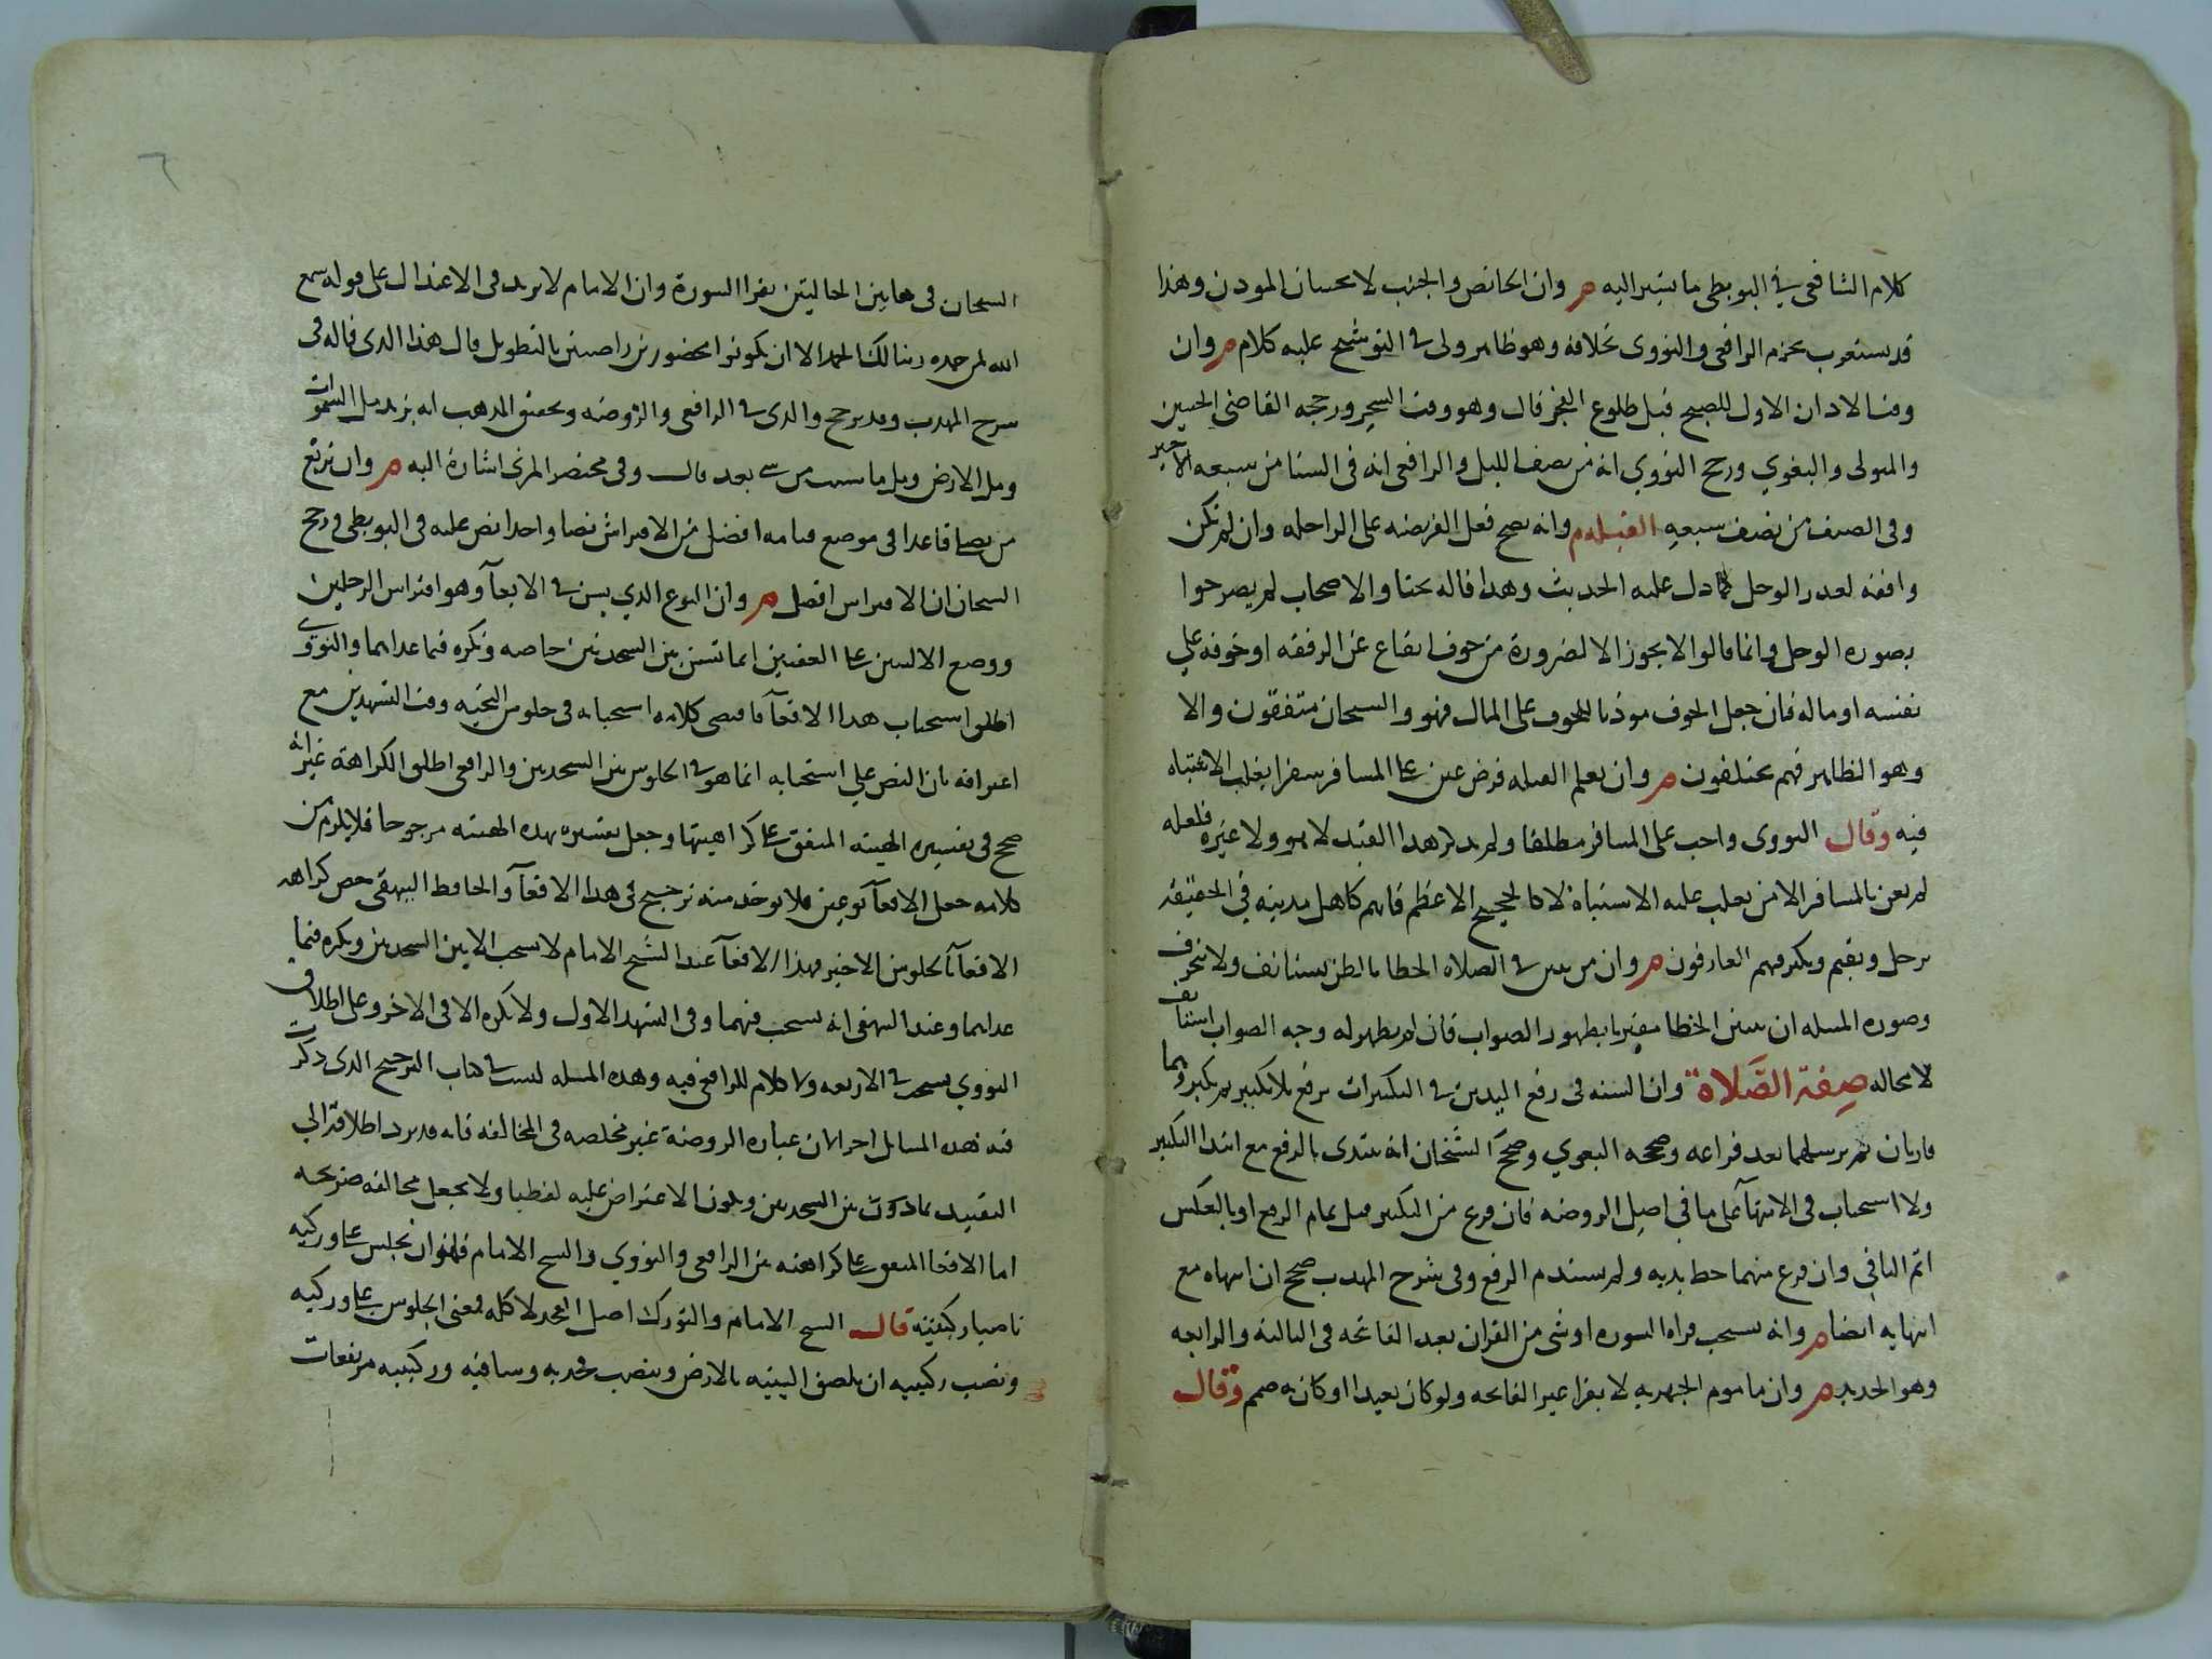 كلام الشافعي في البويطي ما يشير اليه م وان الحائض والجنب لا يجيبان المؤذن وهذا
قد يستغرب بجزم الرافعي والنووي بخلافه وهو ظاهر ولي في التوشيح عليه كلام م وان
وقت الاذان الاول للصبح قبل طلوع الفجر قال وهو وقت السحر ورجحه القاضي الحسين
والمتولي والبغوي ورجح النووي انه من نصف الليل والرافعي انه في الشتا من سبعه الاخير
وفي الصيف من نصف سبعه القبلة م وانه يصح فعل الفريضه على الراحله وان لم تكن
واقفه لعذر الوحل كما دل عليه الحديث وهذا قاله بحثا والاصحاب لم يصرحوا
بصوره الوحل وانما قالوا لا يجوز الا لضرورة من خوف انقطاع عن الرفقه او خوفه علي
نفسه او ماله فان جعل الخوف موذنا للخوف على المال فهو والشيخان متفقون والا
وهو الظاهر فهم مختلفون م وان تعلم القبله فرض عين على المسافر سفرا يغلب الاشتباه
فيه وقال النووي واجب على المسافر مطلقا ولم يذكر هذا القيد لا هو ولا غيره فلعله
لم يعن بالمسافر الا من يغلب عليه الاشتباه لا كالحجيج الاعظم فانهم كاهل مدينه في الحقيقه
ترحل وتقيم ويكثر فيهم العارفون م وان من تيقن في الصلاه الخطا بالظن يستانف ولا ينحرف
وصوره المسله ان تيقن الخطا مقترنا بظهور الصواب فان لم يظهر له وجه الصواب استانف
لا محاله صفة الصلاة وان السنه في رفع اليدين في التكبيرات يرفع بلا تكبير ثم يكبر وهما
قارتان ثم يرسلهما بعد فراغه وصححه البغوي وصحح الشيخان انه يبتدي بالرفع مع ابتدا التكبير
ولا استحباب في الانتهآ على ما في اصل الروضه فان فرغ من التكبير قبل تمام الرفع او بالعكس
اتم الباقي وان فرغ منهما حط يديه ولم يستدم الرفع وفي شرح المهذب صحح ان انتهاه مع
انتهايه ايضا م وانه يستحب قراه السوره او شي من القران بعد الفاتحه في الثالثه والرابعه
وهو الجديد م وان ماموم الجهريه لا يقرا غير الفاتحه ولو كان بعيدا او كان به صمم وقال
الشيخان في هاتين الحالتين يقرا السورة وان الامام لا يزيد في الاعتدال على قوله سمع
الله لمن حمده ربنا لك الحمد الا ان يكونوا محصورين راضين بالتطويل قال هذا الذي قاله في
شرح المهذب وقد يرجح والذي في الرافعي والروضه وتحقيق المذهب انه يزيد مل السموات
ومل الارض ومل ما شيت من شي بعد قال وفي مختصر المزني اشارة اليه م وان تربع
من يصلي قاعدا في موضع قيامه افضل من الافتراش نصا واحدا نص عليه في البويطي ورجح
الشيخان ان الافتراش افضل م وان النوع الذي يسن في الاقعآ وهو افتراش الرجلين
ووضع الاليتين على العقبين انما تسن بين السجدتين خاصه وتكره فيما عداهما والنووي
اطلق استحباب هذا الاقعآ فاقتضى كلامه استحبابه في جلوس التحيه وقت التشهدين مع
اعترافه بان النص علي استحبابه انما هو في الجلوس بين السجدتين والرافعي اطلق الكراهة غير انه
صحح في تفسيره الهيئه المتفق على كراهيتها وجعل تفسيره بهذه الهيئه مرجوحا فلا يلزم من
كلامه جعل الاقعآ نوعين فلا يوخذ منه ترجيح في هذا الاقعآ والحافظ البيهقي خص كراهه
الاقعآ بالجلوس الاخير فهذا الاقعآ عند الشيخ الامام لا يستحب الا بين السجدتين ويكره فيما
عداهما وعند البيهقي انه يستحب فيهما وفي التشهد الاول ولا يكره الا في الاخر وعلى اطلاق
النووي يستحب في الاربعه ولا كلام للرافعي فيه وهذه المسله ليست في كتاب الترجيح الذي ذكرت
فيه هذه المسائل اجراانا عباره الروضة غير مخلصه في المخالفه فانه قد يرد اطلاقه الي
التقييد بما دون بين السجدتين ويكون الاعتراض عليه لفظيا ولا يجعل مخالفه صريحه
اما الاقعا المتفق على كراهته بين الرافعي والنووي والشيخ الامام فهو ان يجلس على وركيه
ناصبا ركبتيه قال الشيخ الامام والتورك اصل الفخذ لا كله فمعنى الجلوس على وركيه
ونصب ركبتيه ان يلصق اليتيه بالارض وينصب فخذيه وساقيه وركبتيه مرتفعات